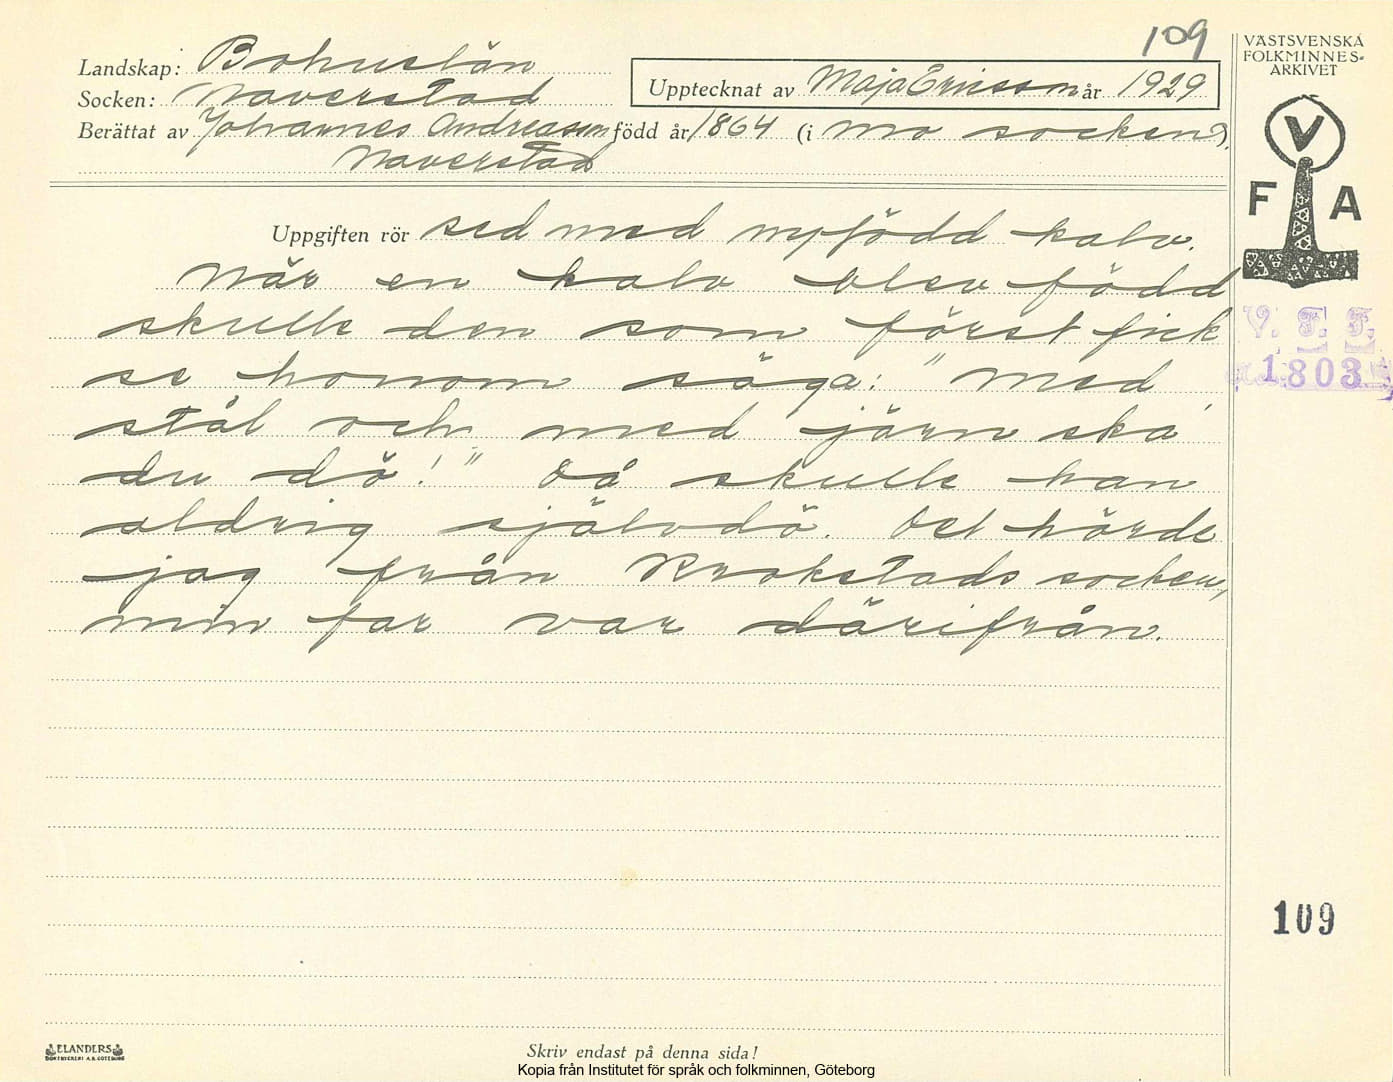 109
VÄSTSVENSKA
FOLKMINNES-
ARKIVET
Landskap: Bohuslän
Socken: Naverstad
Upptecknat av Maja Ericsson år 1929
Berättat av Johannes Andreasson född år 1864 (i Mo socken)
Naverstad
V
F A
Uppgiften rör sed med nyfödd kalv.
När en kalv blev född
skulle den som först fick
se honom säga: "Med
stål och med järn ska
du dö!" Då skulle han
aldrig självdö. Det hörde
jag från Krokstads socken,
min far var därifrån.
V. F. F.
1803
109
ELANDERS
BOKTRYCKERI A.B. GÖTEBORG
Skriv endast på denna sida!
Kopia från Institutet för språk och folkminnen, Göteborg